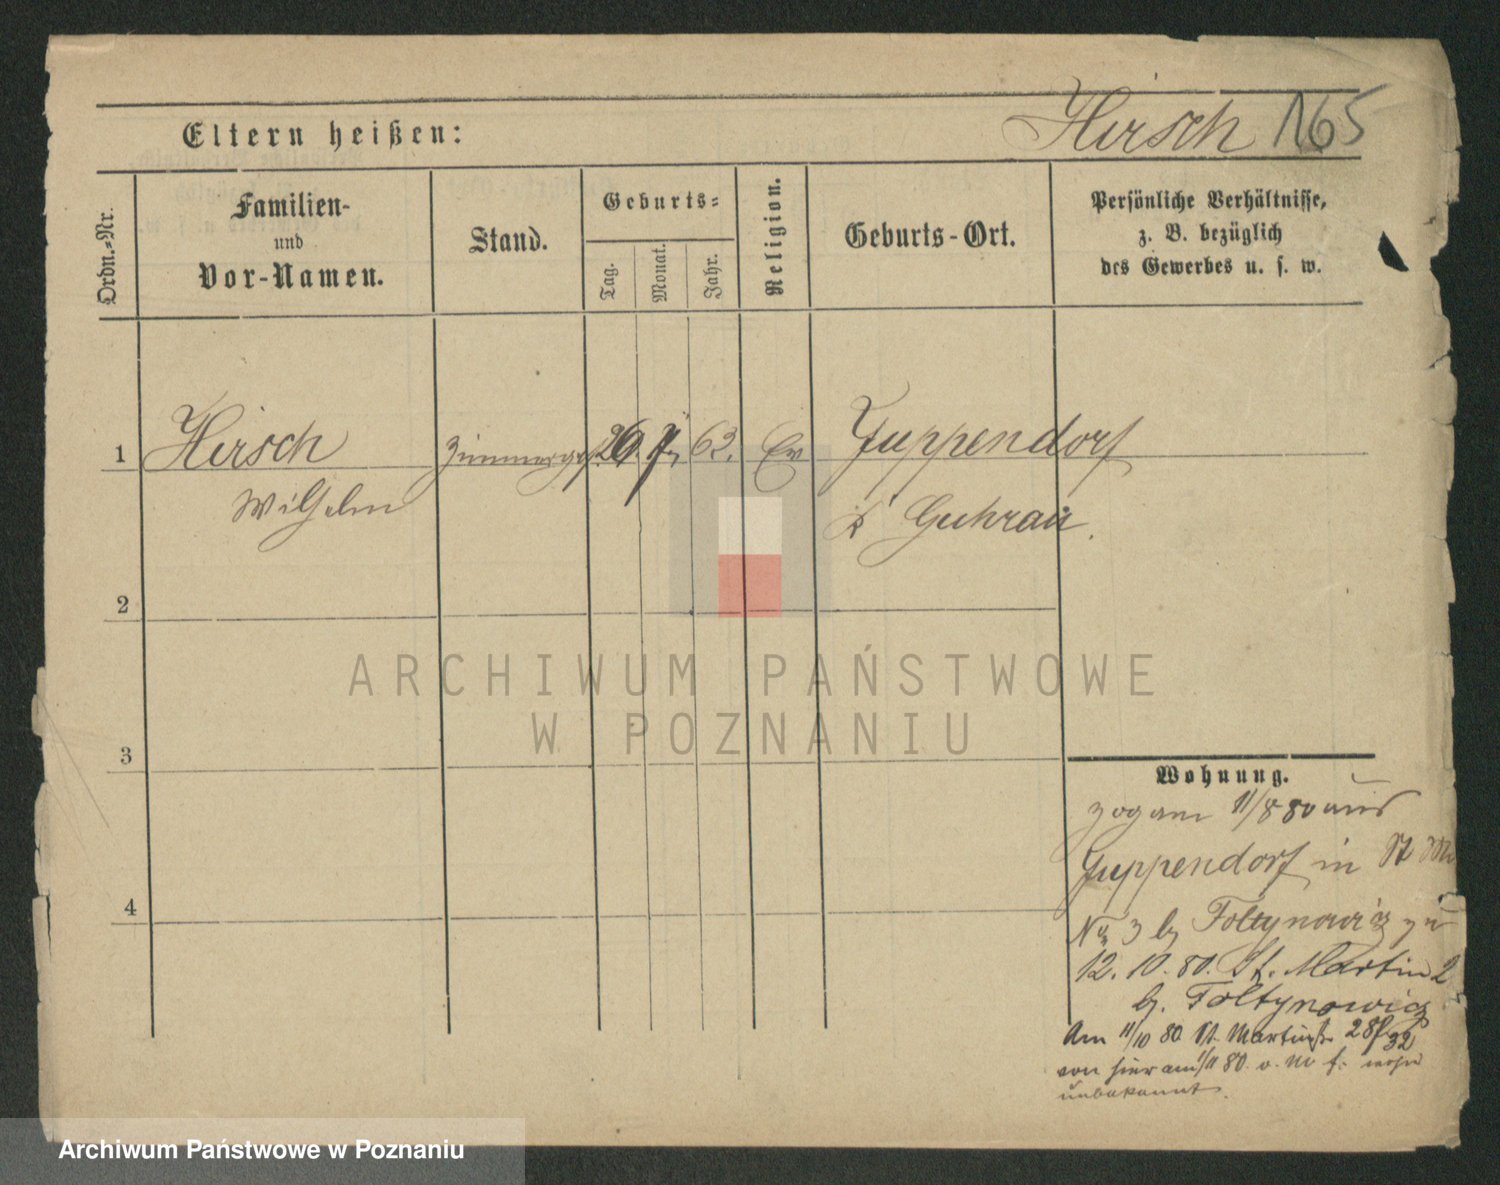 Eltern heißen:
Hirsch 165
Ordn.=Nr.
Familien-
und
Vor-Namen.
Stand.
Geburts=
Tag.
Monat.
Jahr.
Religion.
Geburts-Ort.
Persönliche Verhältnisse,
z. B. bezüglich
des Gewerbes u. s. w.
1 Hirsch Zimmerges. 26. 7. 62. Ev Juppendorf
Wilhelm
Guhrau.
2
3
4
ARCHIWUM PAŃSTWOWE
W POZNANIU
Wohnung.
zog am 11/8 80 aus
Juppendorf in St
No 3 by Foltynowicz
12. 10. 80. St. Martin 2
by. Foltynowicz
Am 11/10 80 St. Martinstr 28 32
von hier am 1/11 80. o. M f. wohin
unbekannt.
Archiwum Państwowe w Poznaniu